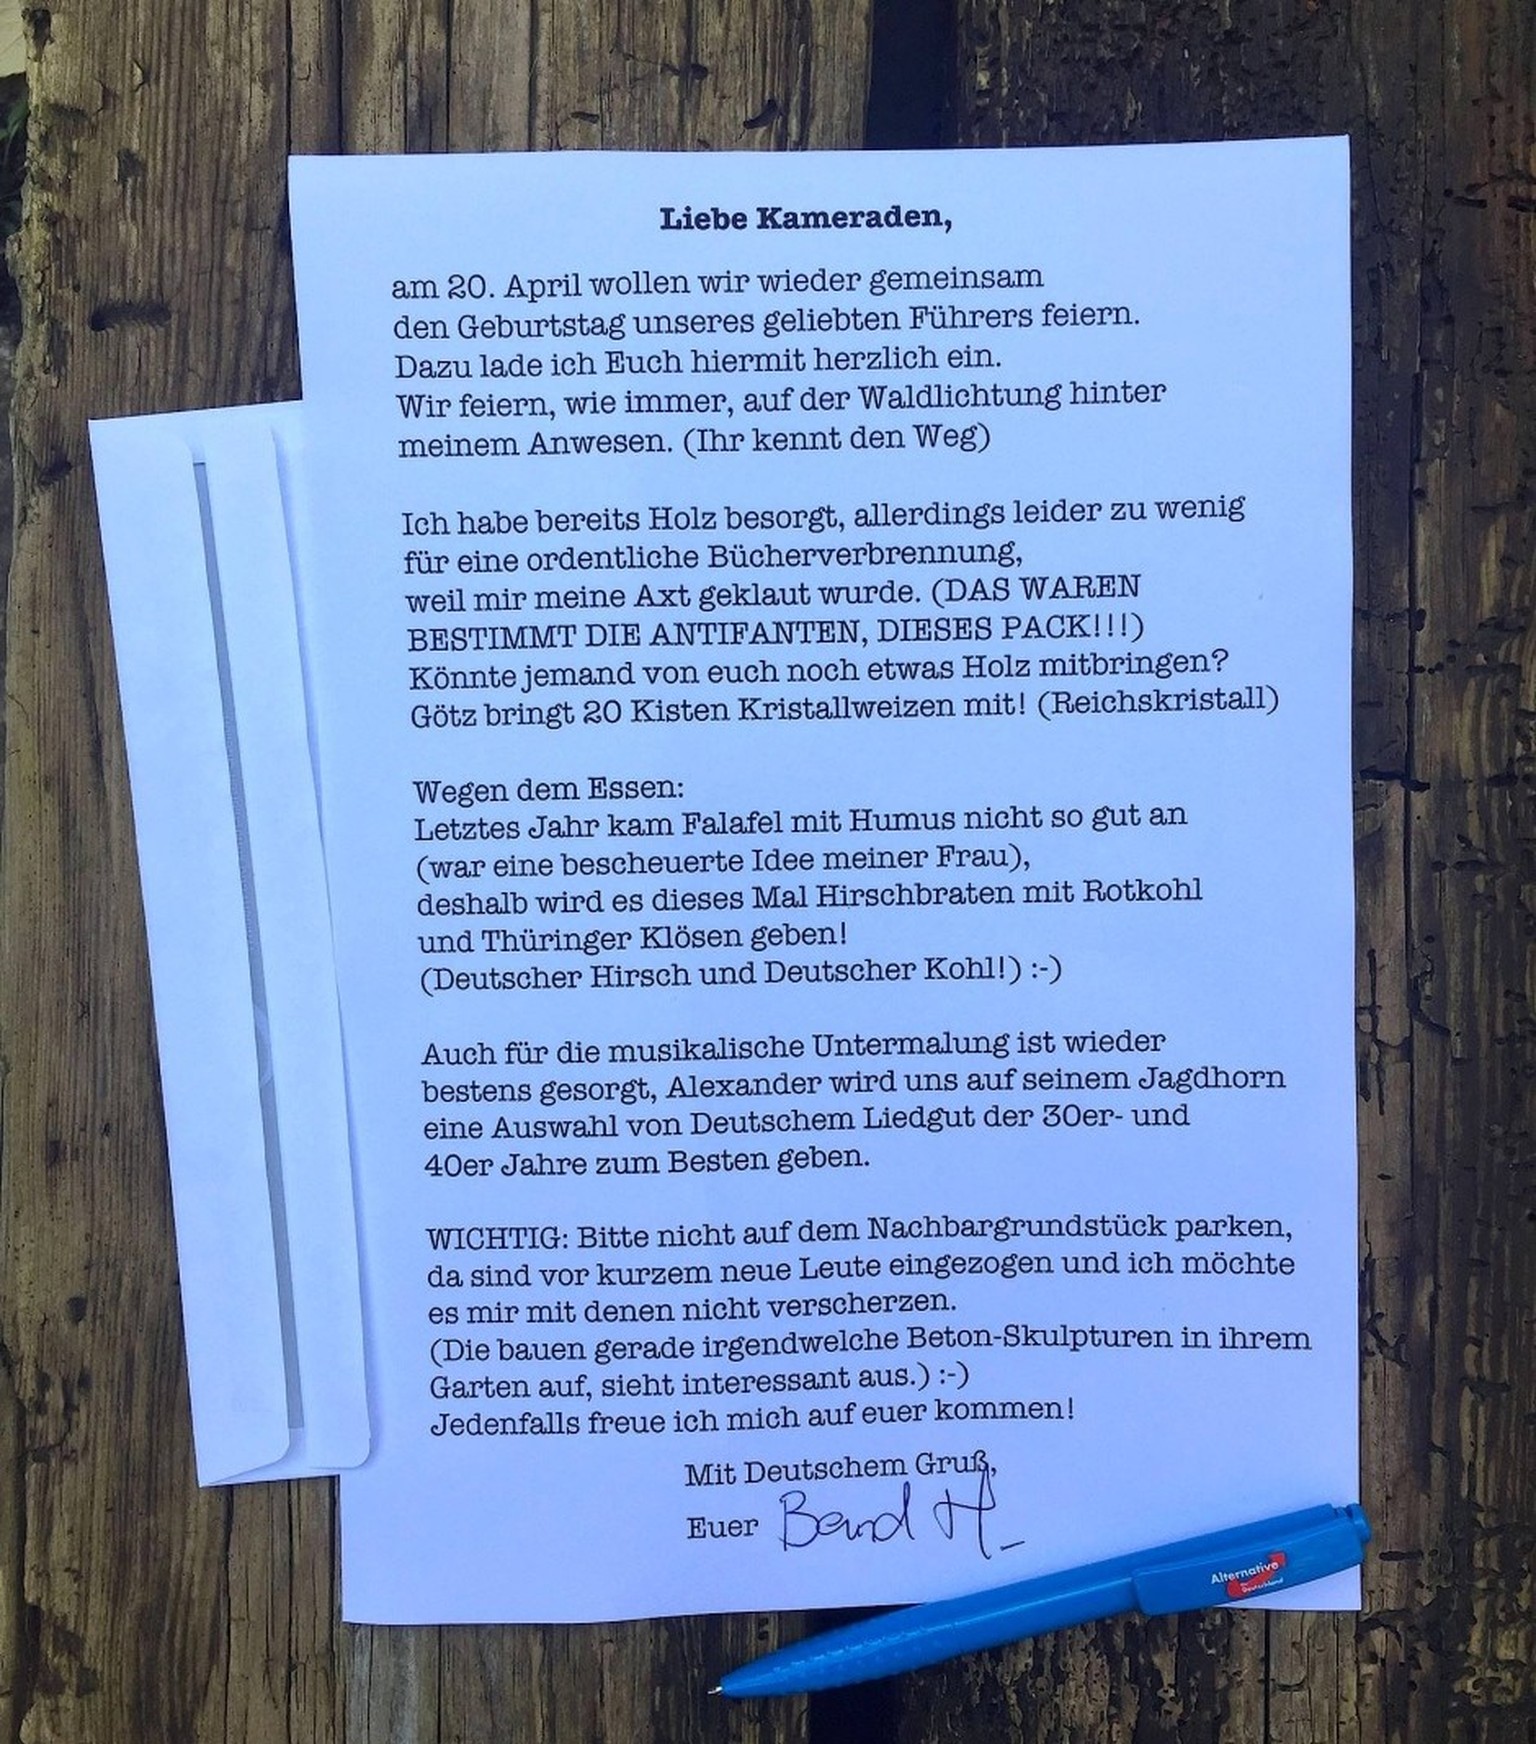 Liebe Kameraden,
am 20. April wollen wir wieder gemeinsam
den Geburtstag unseres geliebten Führers feiern.
Dazu lade ich Euch hiermit herzlich ein.
Wir feiern, wie immer, auf der Waldlichtung hinter
meinem Anwesen. (Ihr kennt den Weg)
Ich habe bereits Holz besorgt, allerdings leider zu wenig
für eine ordentliche Bücherverbrennung,
weil mir meine Axt geklaut wurde. (DAS WAREN
BESTIMMT DIE ANTIFANTEN, DIESES PACK!!!)
Könnte jemand von euch noch etwas Holz mitbringen?
Götz bringt 20 Kisten Kristallweizen mit! (Reichskristall)
Wegen dem Essen:
Letztes Jahr kam Falafel mit Humus nicht so gut an
(war eine bescheuerte Idee meiner Frau),
deshalb wird es dieses Mal Hirschbraten mit Rotkohl
und Thüringer Klösen geben!
(Deutscher Hirsch und Deutscher Kohl!) :-)
Auch für die musikalische Untermalung ist wieder
bestens gesorgt, Alexander wird uns auf seinem Jagdhorn
eine Auswahl von Deutschem Liedgut der 30er- und
40er Jahre zum Besten geben.
WICHTIG: Bitte nicht auf dem Nachbargrundstück parken,
da sind vor kurzem neue Leute eingezogen und ich möchte
es mir mit denen nicht verscherzen.
(Die bauen gerade irgendwelche Beton-Skulpturen in ihrem
Garten auf, sieht interessant aus.) :-)
Jedenfalls freue ich mich auf euer kommen!
Mit Deutschem Gruß,
Euer Bernd H.
Alternative
für Deutschland